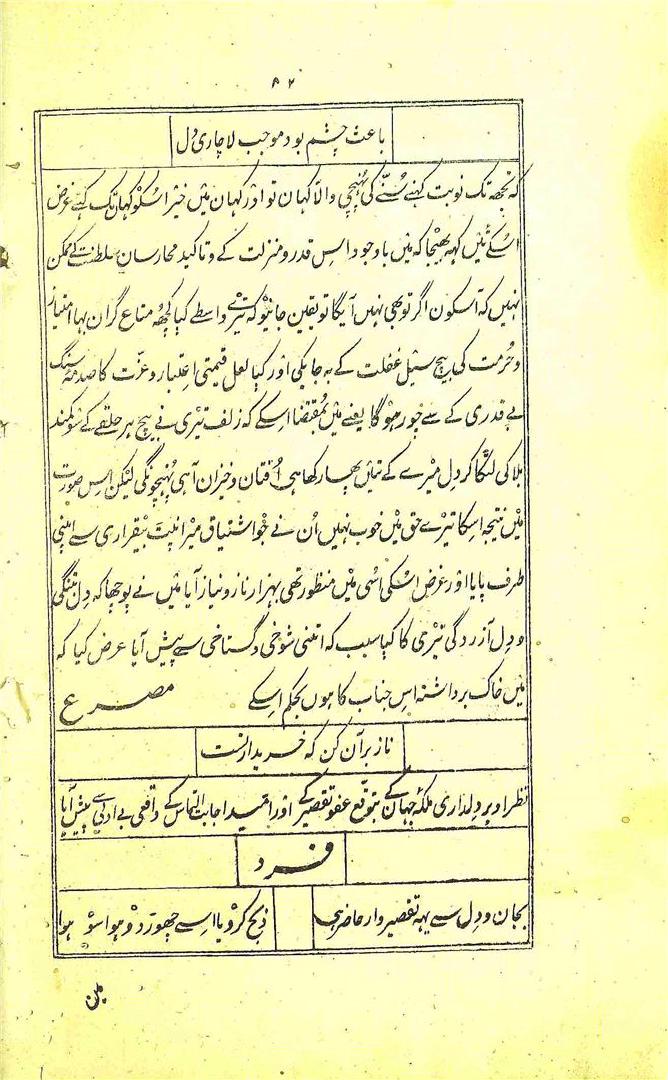 ۴۲
باعث چشم بود موجب لاچاری دل
کہ تجھہ تک نوبت کہنے سُننے کی پُہنچی والّا کہان تو اور کہان مین خیر اُسکو کہان تک کہئے غرض
اُسکے تئین کہہ بھیجا کہ مین باوجود اِس قدر و منزلت کے و تاکید محارسان سلطنت کے ممکن
نہین کہ آسکون اگر تو بھی نہین آیگا تو یقین جانیو کہ تیرے واسطے کیا کچھہ متاع گران بہا امتیاز
و حُرمت کی بیچ سیل غفلت کے بہ جایگی اور کیا لعل قیمتی اِعتبار و عزّت کا صدمۂ سنگ
بے قدری کے سے چور ہوگا یعنے مین بمُقتضا اسکے کہ زلف تیری نے بیچ ہر حلقے کے سَو کمند
بلا کی لٹکا کر دل میرے کے تئین پھسا رکھا ہی اُفتان و خیزان آہی پُہنچونگی لیکن اِس صورت
مین نتیجہ اِسکا تیرے حق مین خوب نہین اُن نے جو اشتیاق میرا نپٹ بیقراری سے اپنی
طرف پایا اور غرض اُسکی اُسی مین منظور تھی بہزار ناز و نیاز آیا مین نے پوچھا کہ دِل تنگی
و دِل آزردگی تیری کا کیا سبب کہ اتنی شوخی و گستاخی سے پیش آیا عرض کیا کہ
مین خاک برداشتہ اس جناب کا ہون بحکم اِسکے مصرع
ناز بر آن کن کہ خریدار تست
نظر اوپر دِلداری ملکۂ جہان کے بتوقّع عفو تقصیر کے اور امید اجابت التماس کے واقعی بے ادبی سے پیش آیا
فرد
بجان و دِل سے یہہ تقصیر وار حاضر ہی
ذبح کرو یا اسے چھوڑ دو ہوا سو ہوا
مین